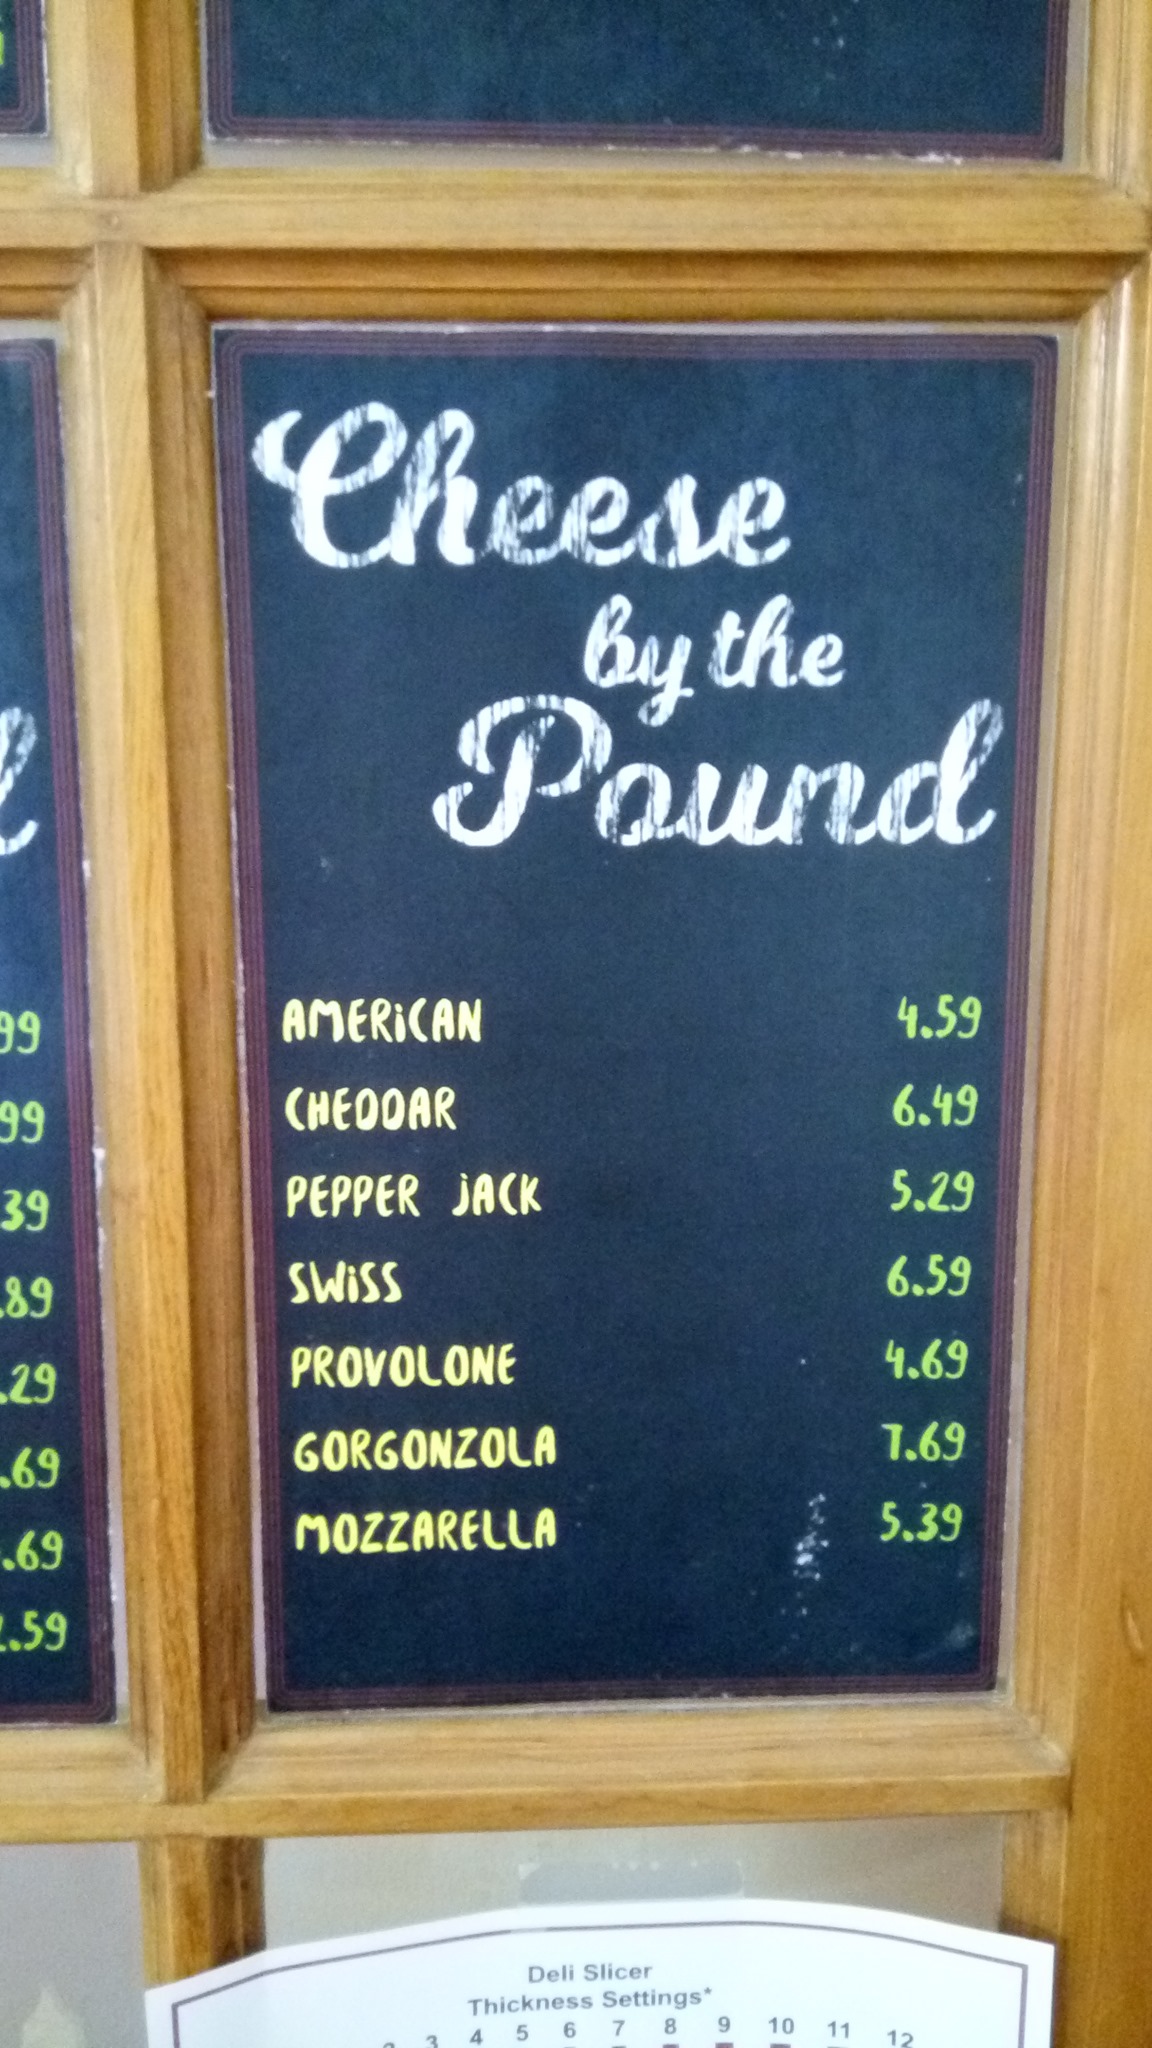 Cheese
by the
Pound
AMERiCAN 4.59
CHEDDAR 6.49
PEPPER jACK 5.29
SWiSS 6.59
PROVOLONE 4.69
GORGONZOLA 7.69
MOZZARELLA 5.39
99
99
.39
.89
.29
.69
.69
2.59
Deli Slicer
Thickness Settings*
2 3 4 5 6 7 8 9 10 11 12